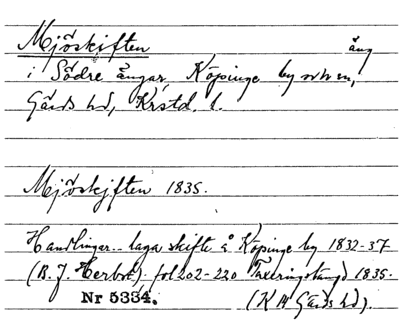 Mjöskiften äng
i Södre ängar, Köpinge by o sn,
Gärds hd, Krstd. l.
Mjöskjften 1835.
Handlingar .. laga skifte å Köpinge by 1832-37
(B. J. Herbst). fol 202-220 Taxeringslängd 1835.
Nr 5334. (K A Gärds hd).